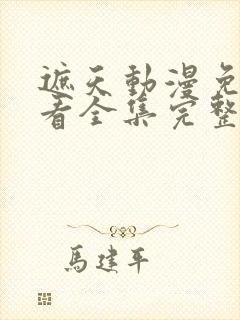 遮天動漫免
看全集完整
馬建平